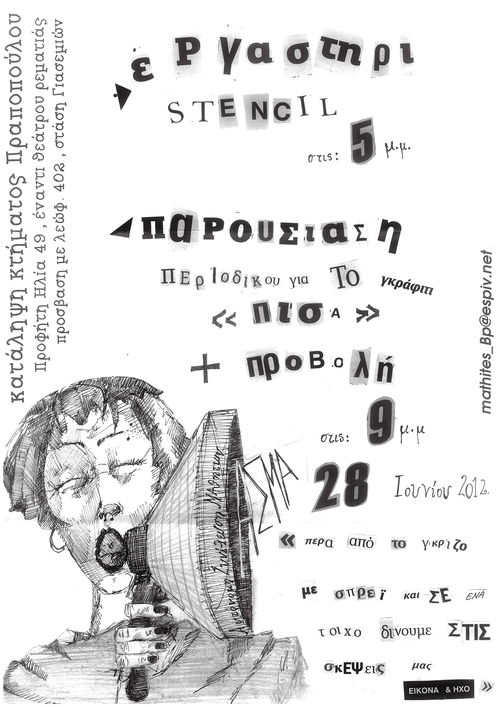 εργαστηρι
STENCIL
στις: 5 μ.μ.
παρουσιαση
περιοδικου για Το γκράφιτι
« πισΑ »
+ προβολή
στις: 9 μ.μ.
28 Ιουνίου 2012.
« περα από το γκριζο
με σπρεϊ και ΣΕ ΕΝΑ
τοιχο δινουμε ΣΤΙΣ
σκεψεις μας
ΕΙΚΟΝΑ & ΗΧΟ »
κατάληψη κτήματος Πραποπούλου
Προφήτη Ηλία 49, έναντι θεάτρου ρεματιάς
πρόσβαση με λεώφ. 402, στάση Γιασεμιών
mathites_Bp@espiv.net
ΑΣΜΑ